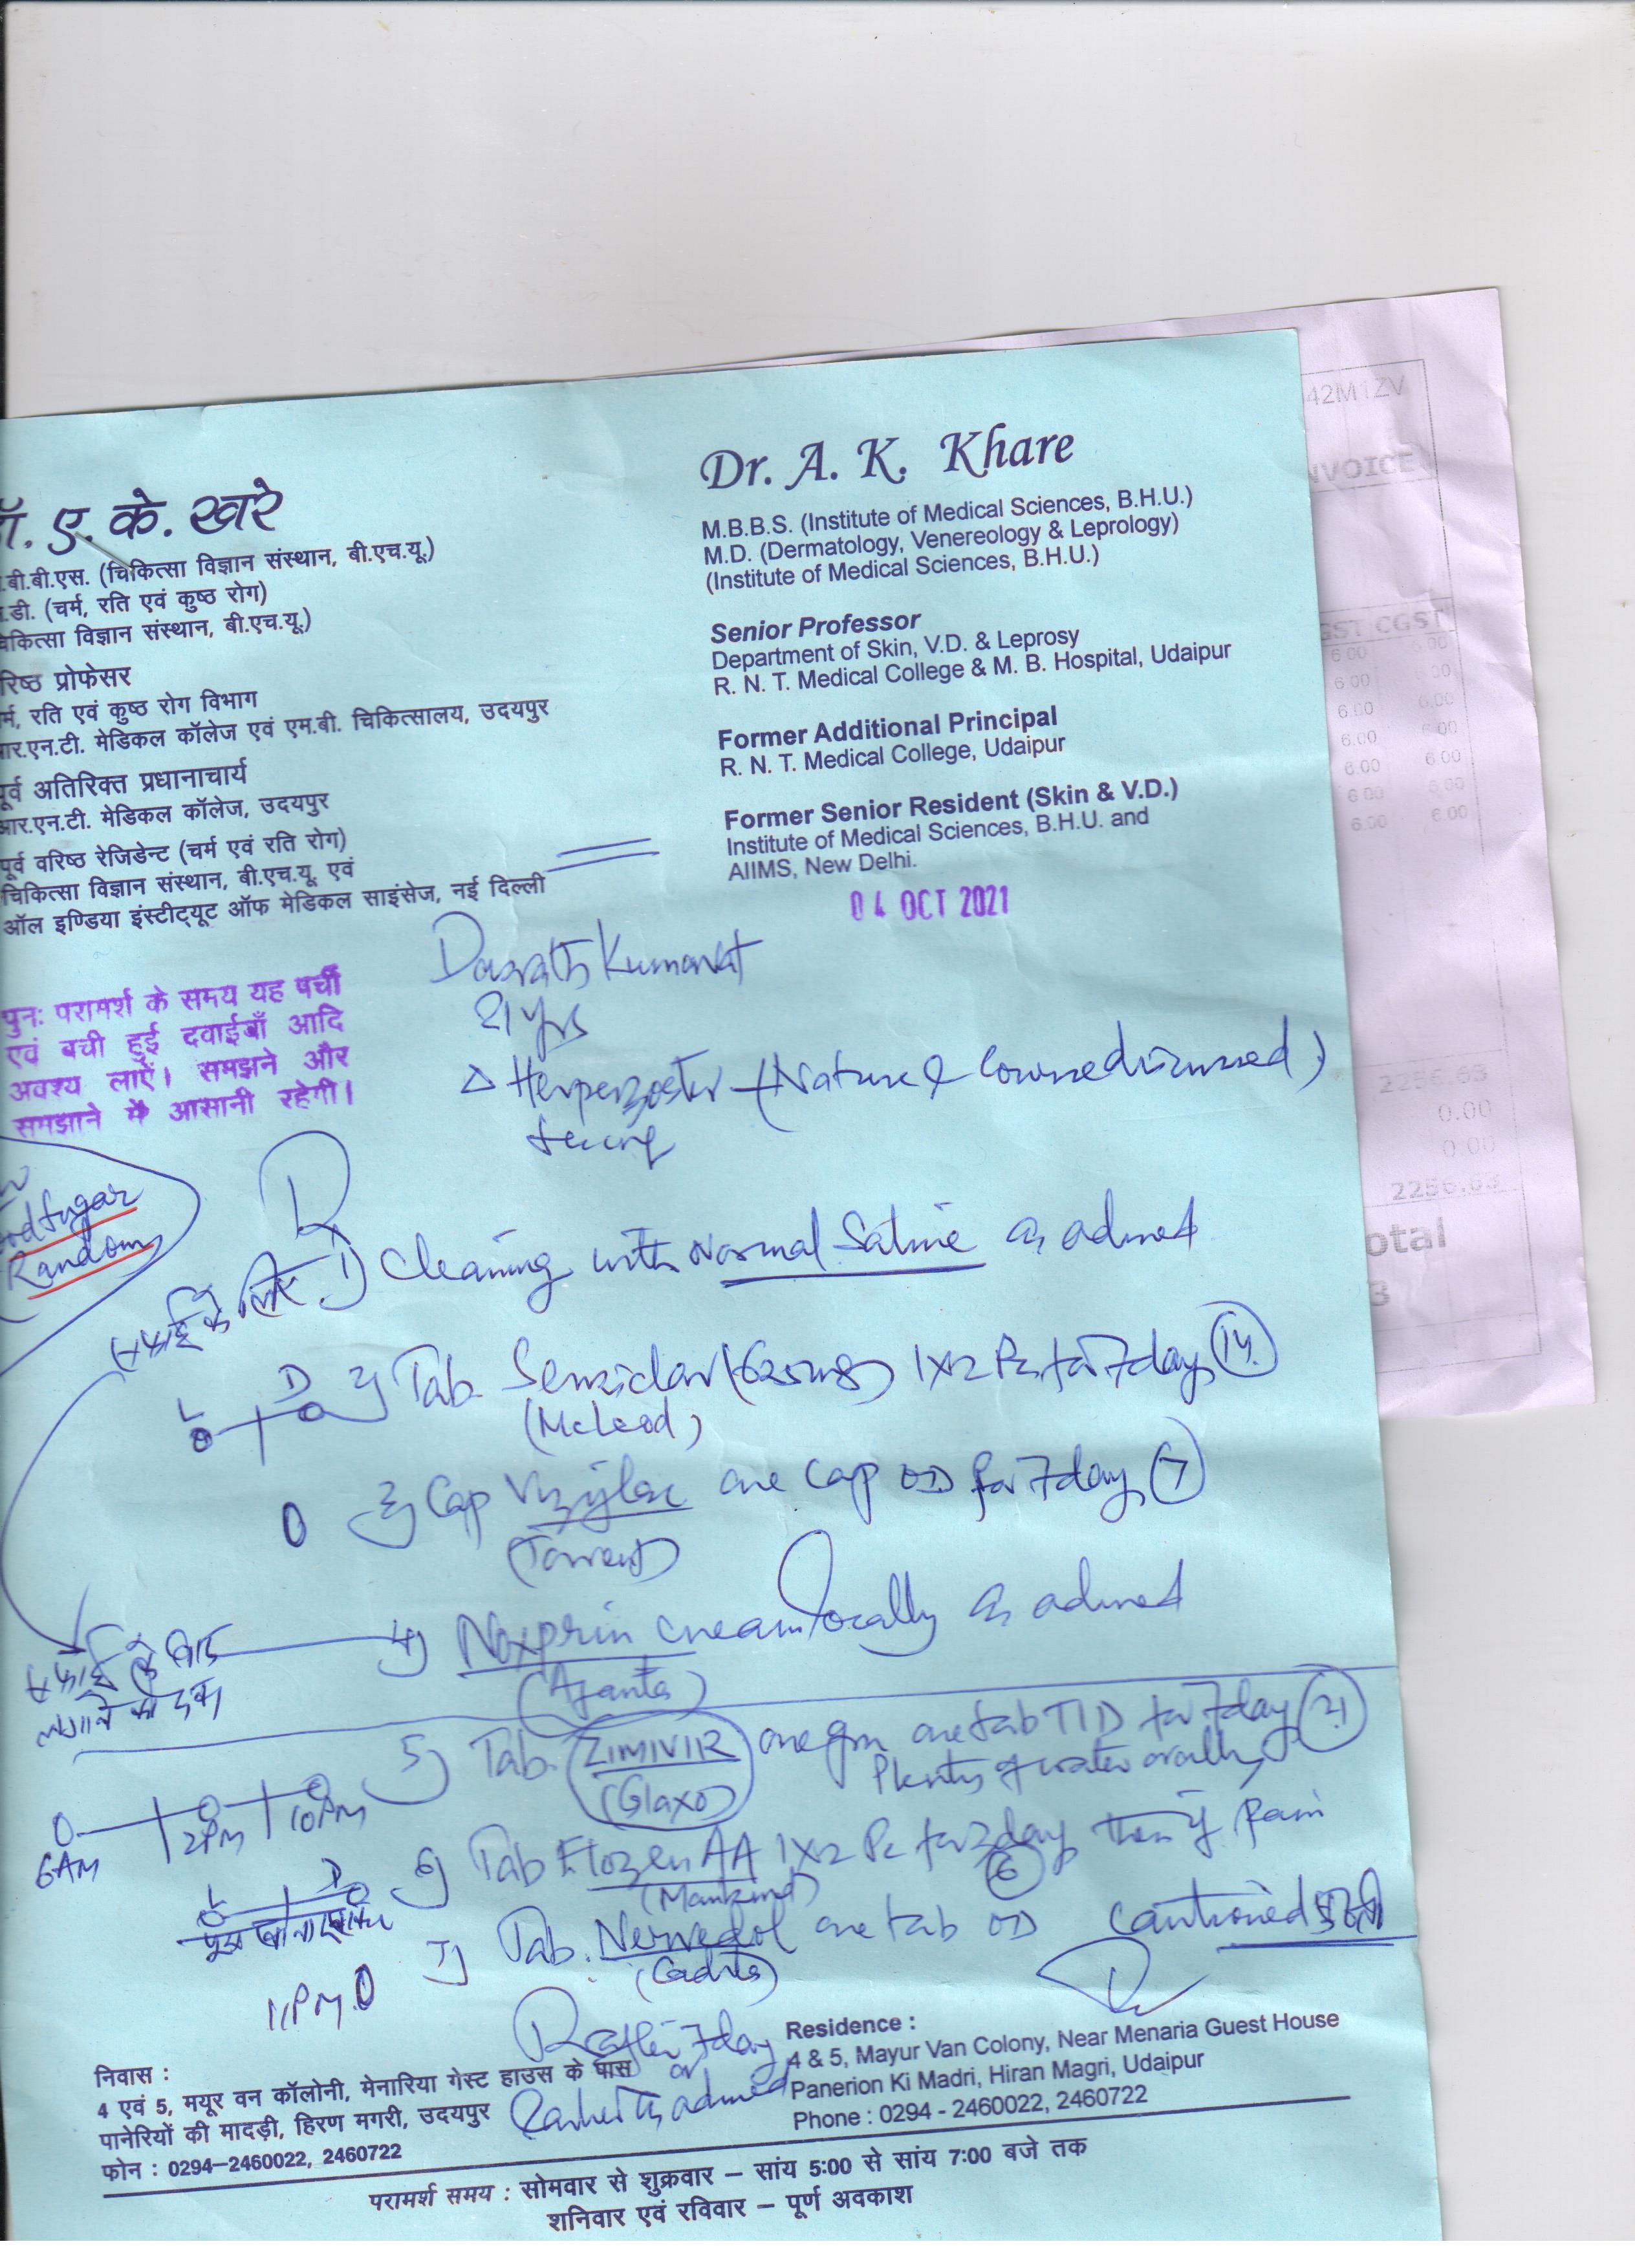 ॉ. ए. के. खरे
.बी.बी.एस. (चिकित्सा विज्ञान संस्थान, बी.एच.यू.)
.डी. (चर्म, रति एवं कुष्ठ रोग)
चिकित्सा विज्ञान संस्थान, बी.एच.यू.)
रिष्ठ प्रोफेसर
र्म, रति एवं कुष्ठ रोग विभाग
आर.एन.टी. मेडिकल कॉलेज एवं एम.बी. चिकित्सालय, उदयपुर
पूर्व अतिरिक्त प्रधानाचार्य
आर.एन.टी. मेडिकल कॉलेज, उदयपुर
पूर्व वरिष्ठ रेजिडेन्ट (चर्म एवं रति रोग)
चिकित्सा विज्ञान संस्थान, बी.एच.यू. एवं
ऑल इण्डिया इंस्टीट्यूट ऑफ मेडिकल साइंसेज, नई दिल्ली
Dr. A. K. Khare
M.B.B.S. (Institute of Medical Sciences, B.H.U.)
M.D. (Dermatology, Venereology & Leprology)
(Institute of Medical Sciences, B.H.U.)
Senior Professor
Department of Skin, V.D. & Leprosy
R. N. T. Medical College & M. B. Hospital, Udaipur
Former Additional Principal
R. N. T. Medical College, Udaipur
Former Senior Resident (Skin & V.D.)
Institute of Medical Sciences, B.H.U. and
AIIMS, New Delhi.
04 OCT 2021
42M1ZV
NVOICE
GST CGST
6.00 6.00
6.00 6.00
6.00 6.00
6.00 6.00
6.00 6.00
6.00 6.00
6.00 6.00
2256.63
0.00
0.00
2256.63
otal
3
पुनः परामर्श के समय यह पर्ची
एवं बची हुई दवाईयाँ आदि
अवश्य लाऐं। समझने और
समझाने में आसानी रहेगी।
Kumawat
21 yrs
Δ Herpes zoster (Nature & Course discussed)
Sugar
Random
सफाई के लिए 1) Cleaning with Normal Saline as advised
L D 2) Tab. (625mg) 1x2 Pc for 7 days 14
(McLeod)
3) Cap Vizylac one cap OD for 7 days 7
(Torrent)
सफाई के बाद 4) Noxprin cream locally as advised
लगाने की दवा
(Ajanta)
5) Tab. ZIMIVIR one gm one tab TID for 7 days 21
(Glaxo) Plenty of water orally
6AM 2PM 10PM
L D 6) Tab Flozen AA 1x2 Pc for 3 days then if pain
(Mankind) 6
11PM 7) Tab. one tab OD cautioned
(Cadila)
R after 7 days
or
Earlier as advised
निवास :
4 एवं 5, मयूर वन कॉलोनी, मेनारिया गेस्ट हाउस के पास
पानेरियों की मादड़ी, हिरण मगरी, उदयपुर
फोन : 0294–2460022, 2460722
Residence :
4 & 5, Mayur Van Colony, Near Menaria Guest House
Panerion Ki Madri, Hiran Magri, Udaipur
Phone : 0294 - 2460022, 2460722
परामर्श समय : सोमवार से शुक्रवार – सांय 5:00 से सांय 7:00 बजे तक
शनिवार एवं रविवार – पूर्ण अवकाश